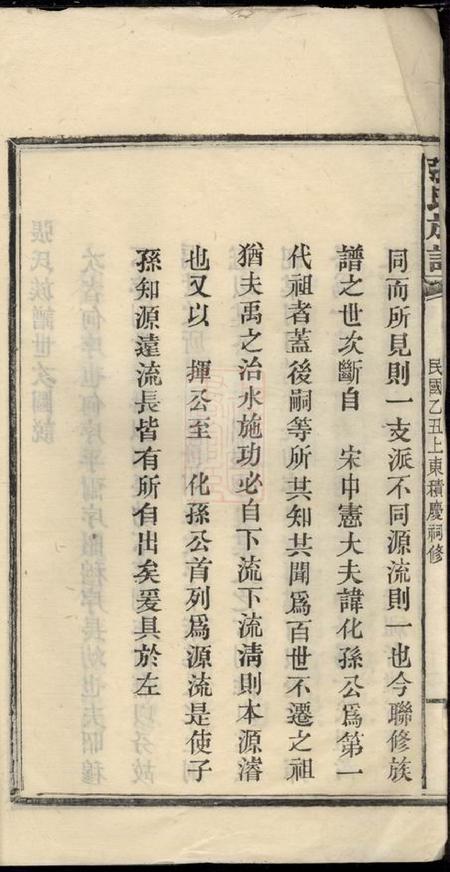 張氏族譜
民國乙丑上東積慶祠修
同而所見則一支派不同源流則一也今聯修族
譜之世次斷自 宋中憲大夫諱化孫公爲第一
代祖者蓋後嗣等所共知共聞爲百世不遷之祖
猶夫禹之治水施功必自下流下流淸則本源濬
也又以 揮公至 化孫公首列爲源流是使子
孫知源遠流長皆有所自出矣爰具於左